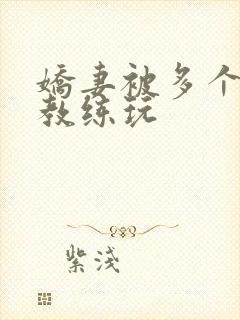 娇妻被多个
教练玩
紫浅